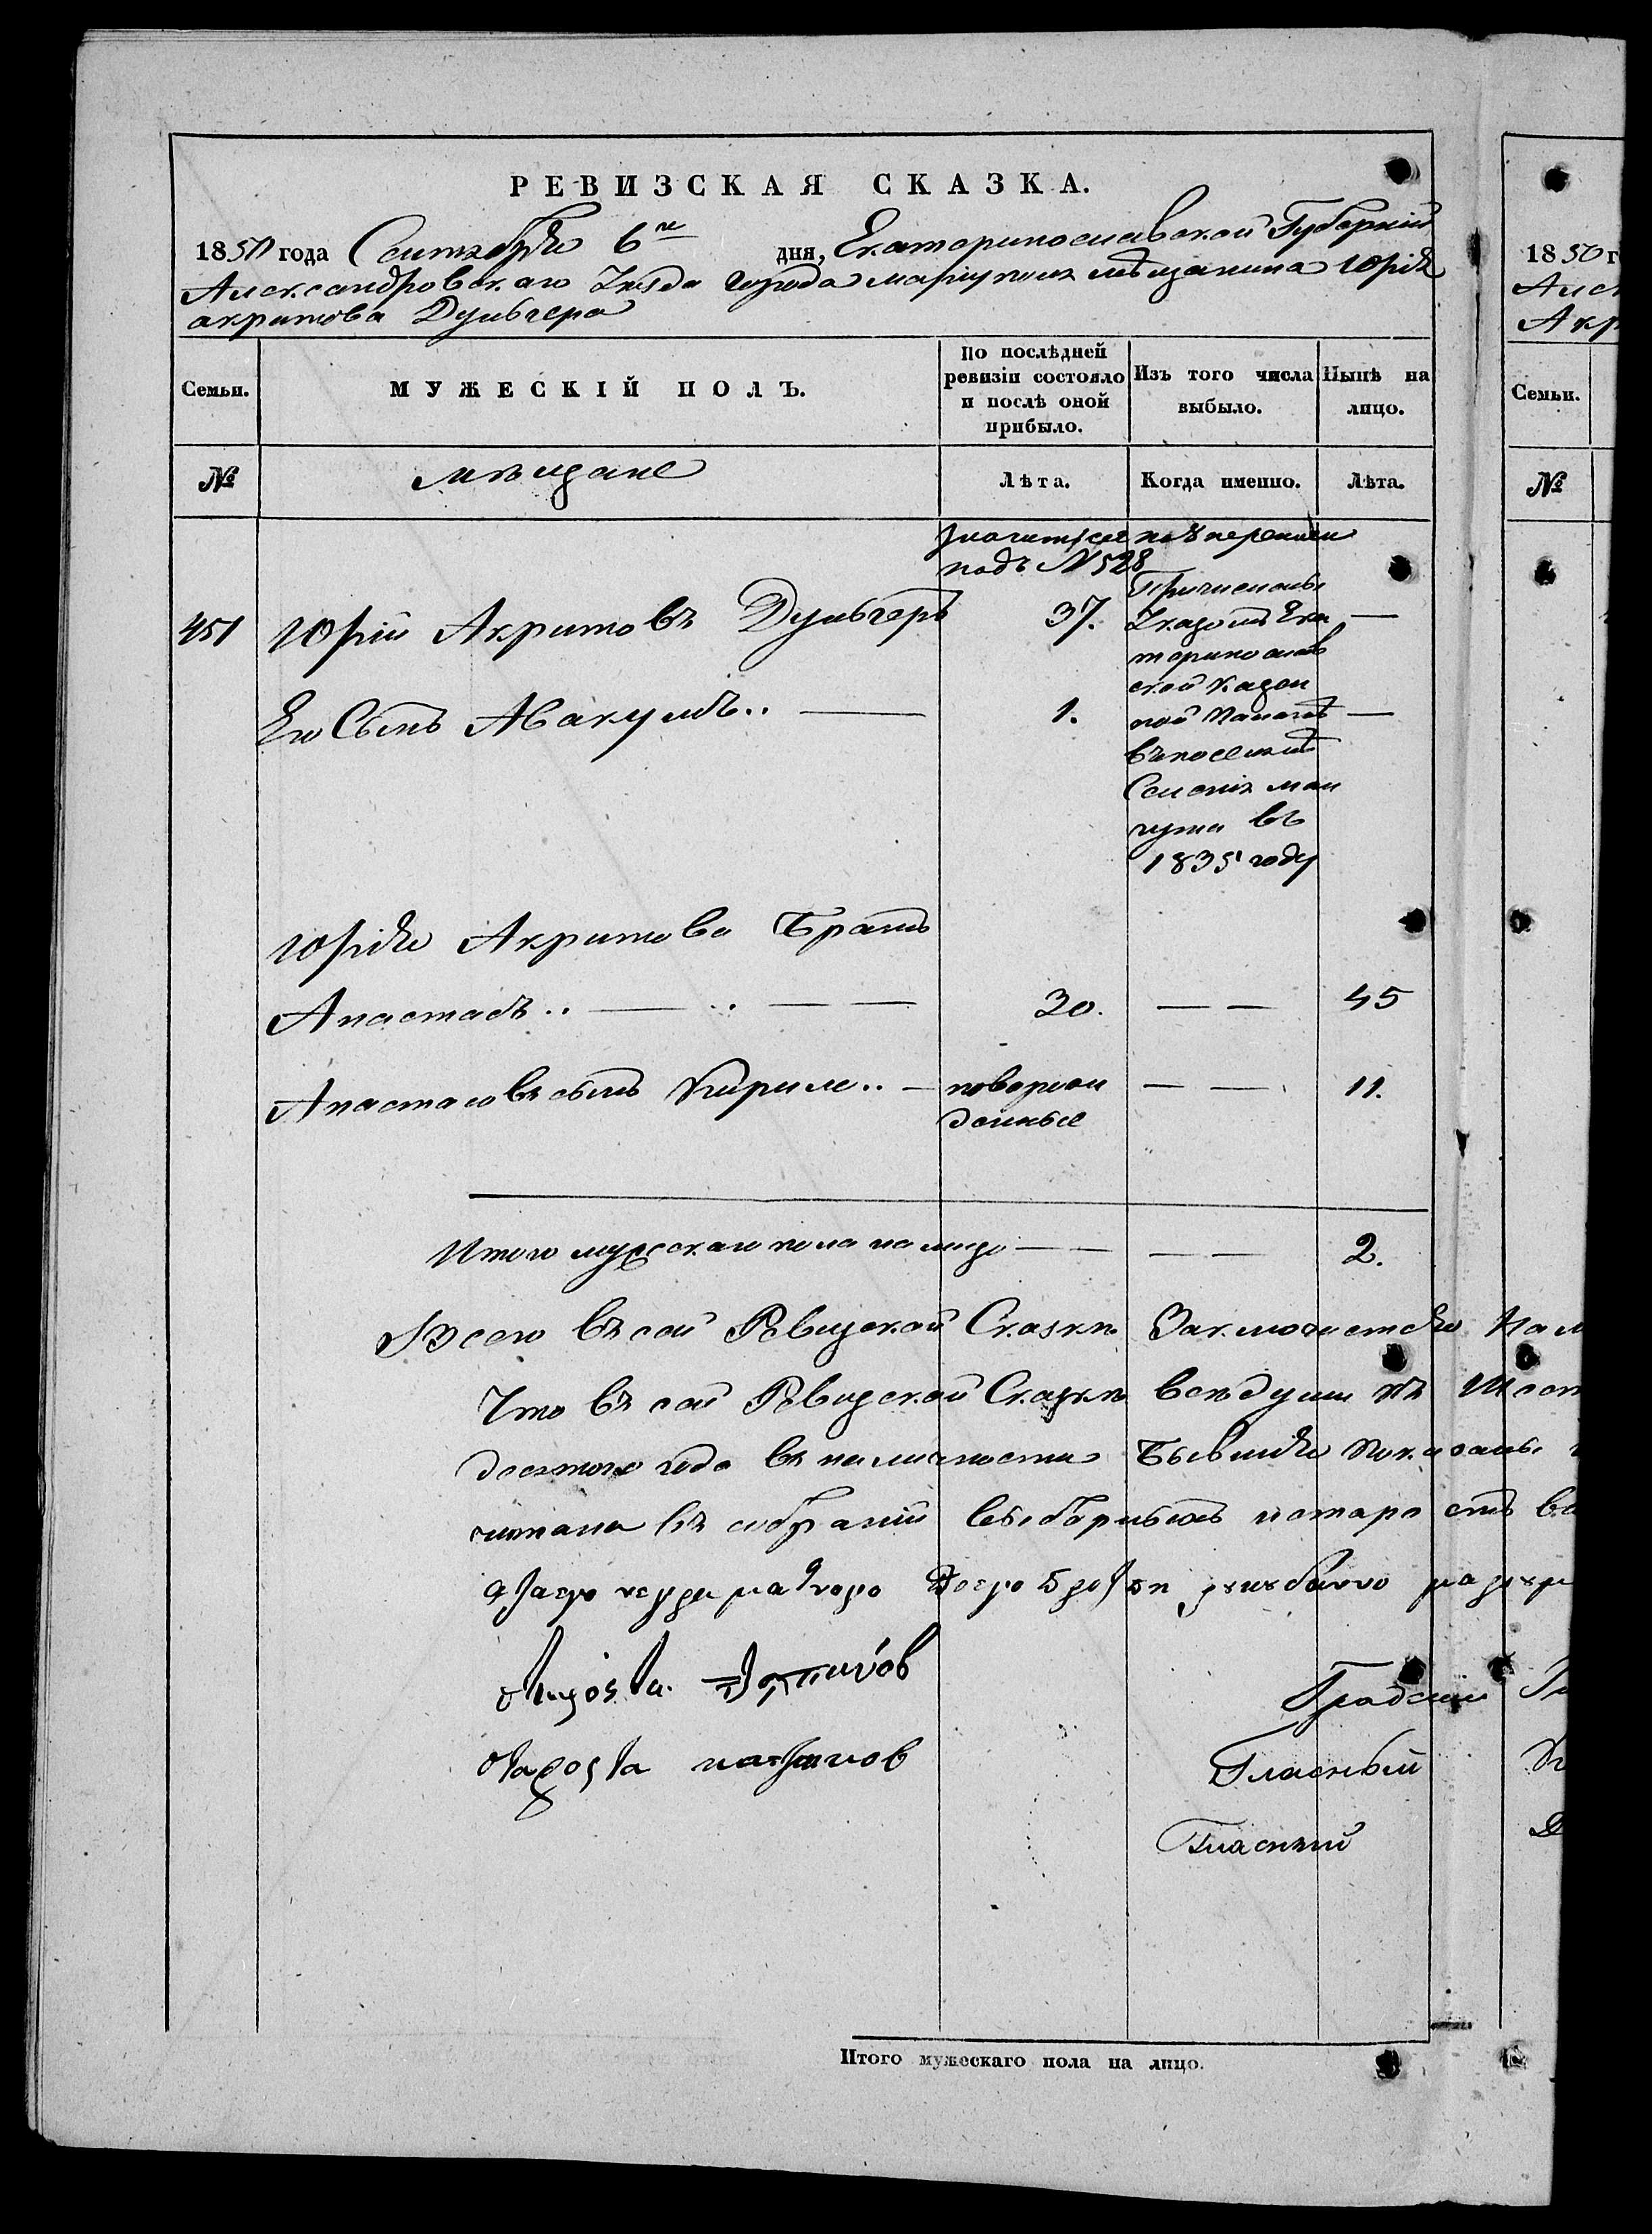 РЕВИЗСКАЯ СКАЗКА.
1850 года Сентября 6го дня, Екатеринославской Губерніи
Александровскаго Уезда города мариуполя мѣщанина Юрія
акритова Дульгера
Семьи.
МУЖЕСКІЙ ПОЛЪ.
По послѣдней ревизіи состояло и послѣ оной прибыло.
Изъ того числа выбыло.
Нынѣ на лицо.
№
мѣщане
Лѣта.
Когда именно.
Лѣта.
значится по 8 переписи
подъ N 528
451 Юрій Акритовъ Дульгеръ 37. —
Причисленъ
Указомъ Ека
теринослав
ской казен
ной палатѣ
въ поселянѣ
Селенія ман
гуша въ
1835 году
Его Сынъ Авакумъ.. — 1. —
Юрія Акритова Братъ
Анастасъ.. — .. — — 30. — — 45
Анастасовъ сынъ Кирилъ.. — поверхон — — 11.
данные
Итого мужескаго пола на лицо — — — — 2.
Всего въ сей Ревизской Сказкѣ Заключается
Что въ сей Ревизской Сказкѣ всѣ души къ
десятого года въ наличности Бывшія показаны
читана въ собраніи выборныхъ и старостъ
Градский
Гласный
Гласный
Итого мужескаго пола на лицо.
1850 г
Алек
Акр
Семьи.
№